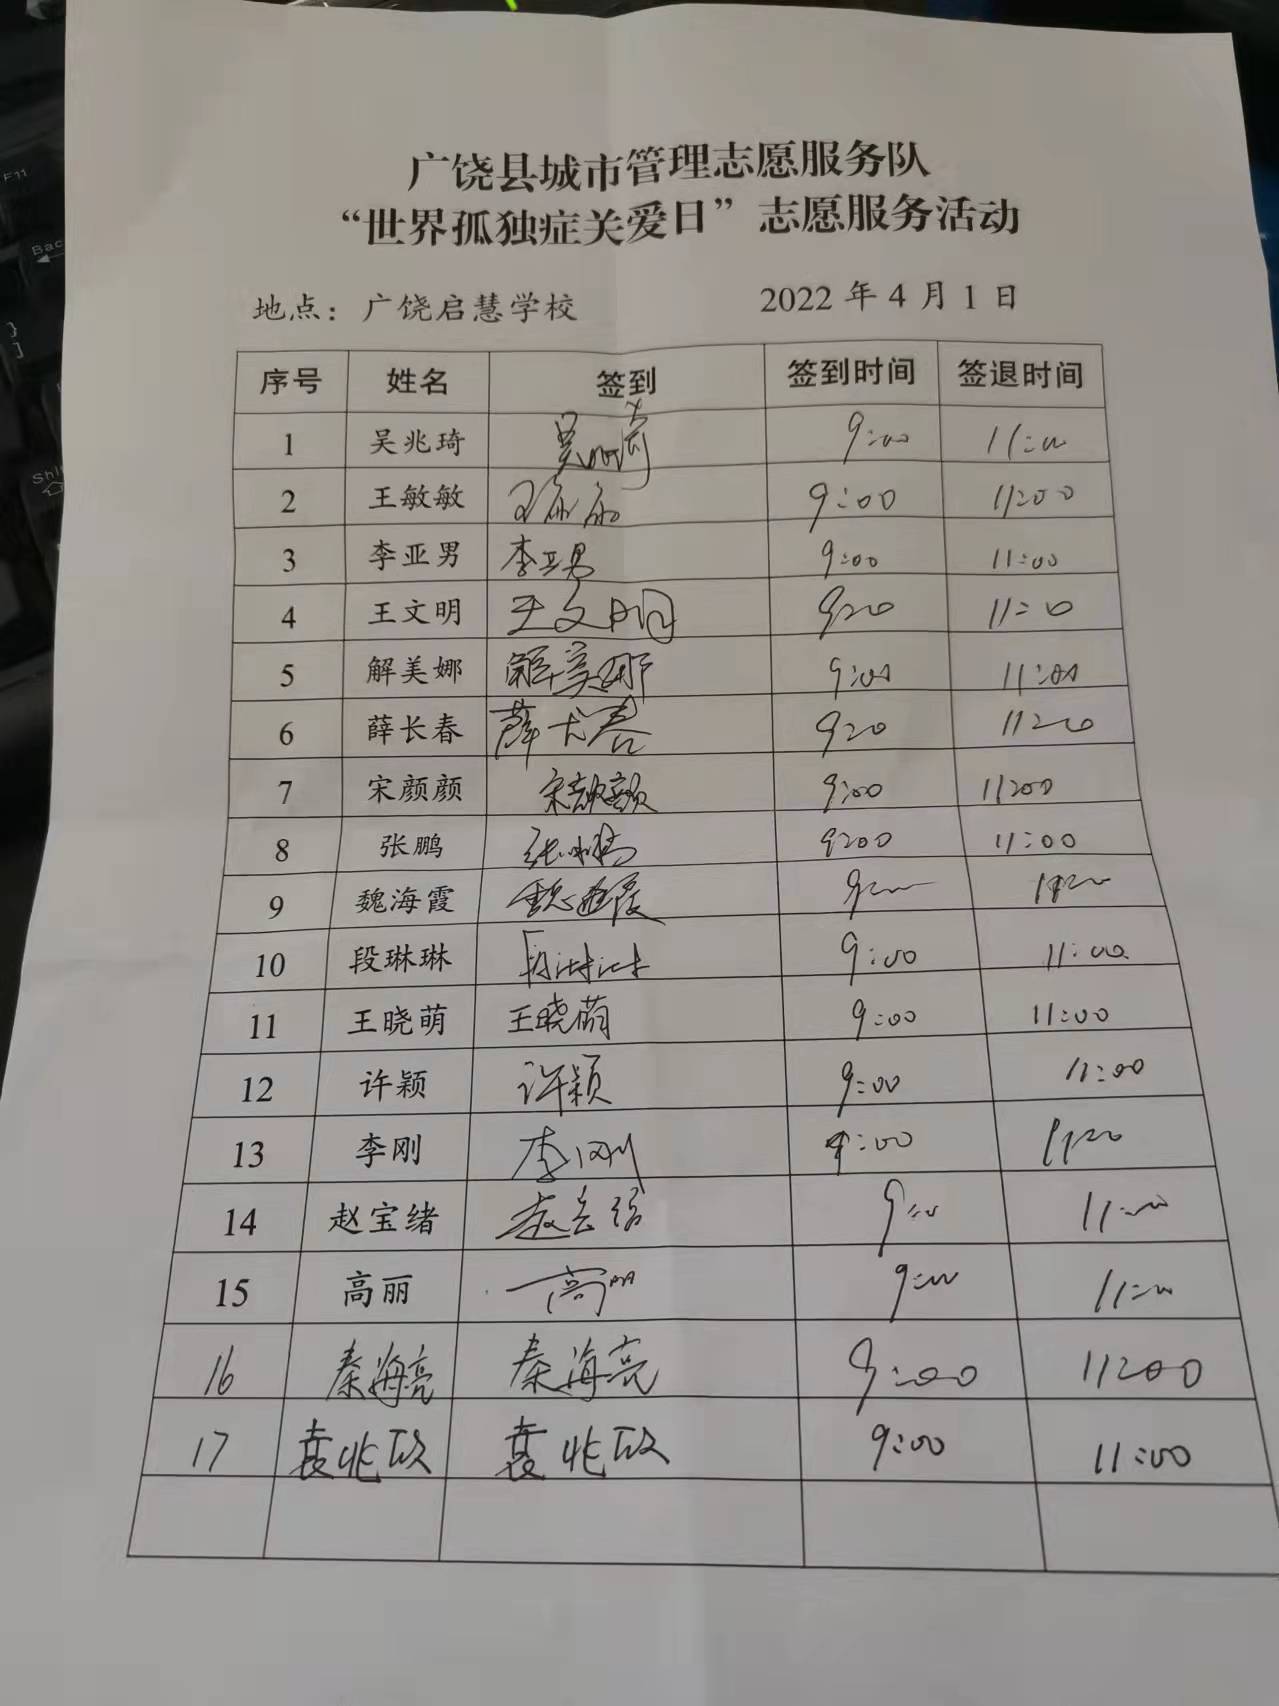 广饶县城市管理志愿服务队
“世界孤独症关爱日”志愿服务活动
地点：广饶启慧学校 2022年4月1日
序号 姓名 签到 签到时间 签退时间
1 吴兆琦 吴兆琦 9:00 11:00
2 王敏敏 王敏敏 9:00 11:00
3 李亚男 李亚男 9:00 11:00
4 王文明 王文明 9:00 11:00
5 解美娜 解美娜 9:00 11:00
6 薛长春 薛长春 9:00 11:00
7 宋颜颜 宋颜颜 9:00 11:00
8 张鹏 张鹏 9:00 11:00
9 魏海霞 魏海霞 9:00 11:00
10 段琳琳 段琳琳 9:00 11:00
11 王晓萌 王晓萌 9:00 11:00
12 许颖 许颖 9:00 11:00
13 李刚 李刚 9:00 11:00
14 赵宝绪 赵宝绪 9:00 11:00
15 高丽 高丽 9:00 11:00
16 秦海亮 秦海亮 9:00 11:00
17 袁兆欣 袁兆欣 9:00 11:00
F11